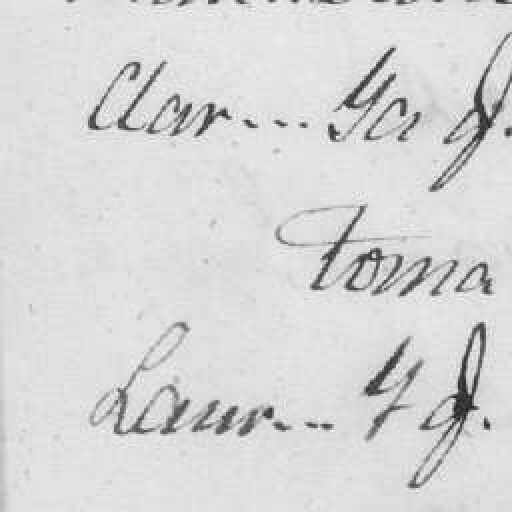 Clar... Ya d.
toma
Laur... Y d.